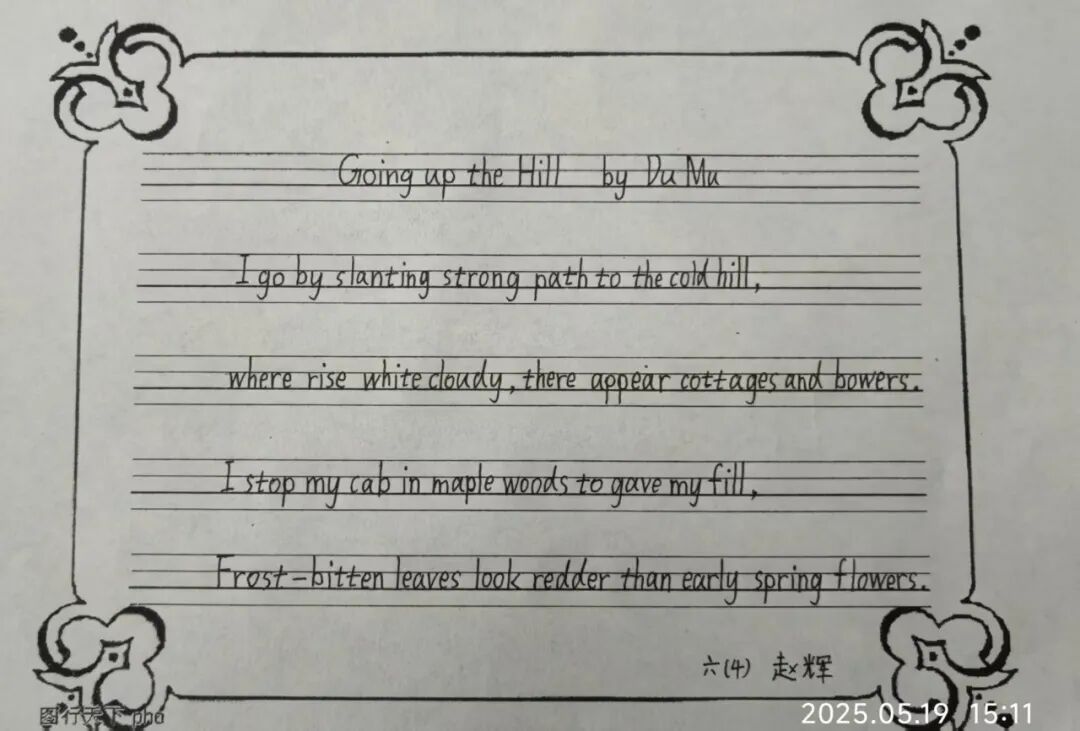 Going up the Hill by Du Mu
I go by slanting strong path to the cold hill,
where rise white cloudy, there appear cottages and bowers.
I stop my cab in maple woods to gave my fill,
Frost-bitten leaves look redder than early spring flowers.
六(4) 赵辉
图行天下 pho
2025.05.19 15:11